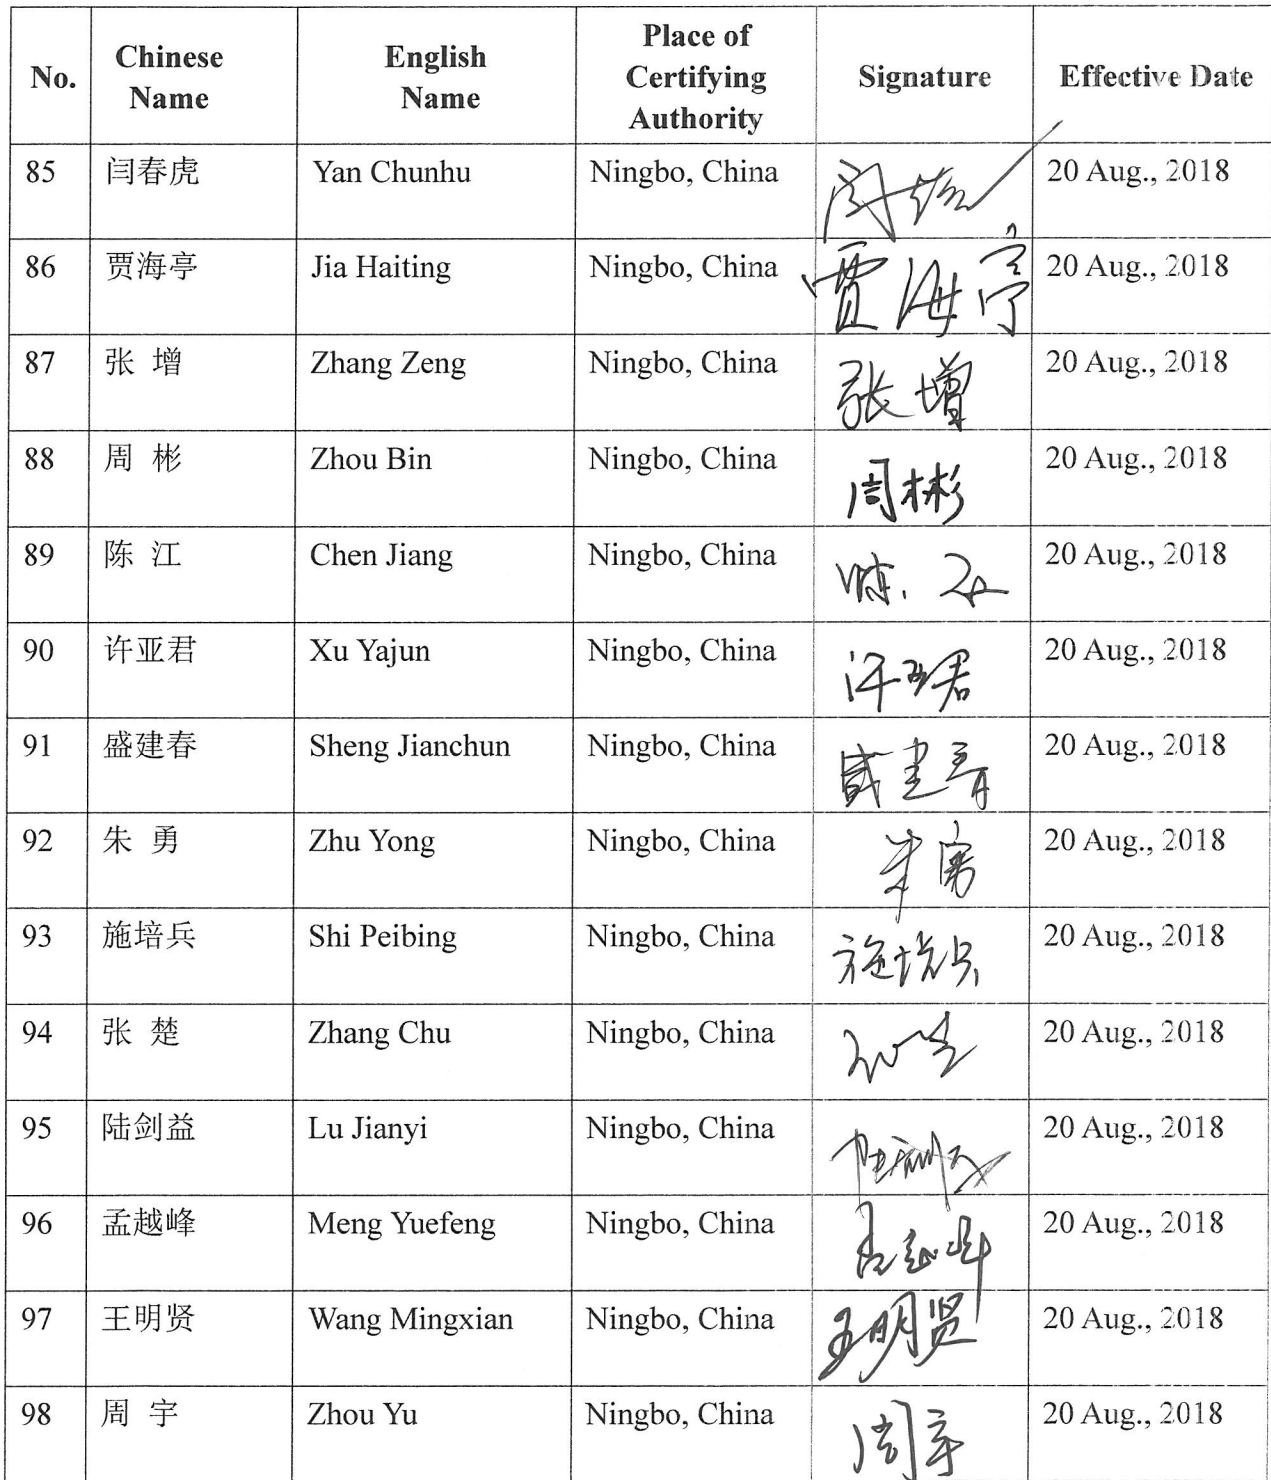 No. Chinese Name English Name Place of Certifying Authority Signature Effective Date
85 闫春虎 Yan Chunhu Ningbo, China 20 Aug., 2018
86 贾海亭 Jia Haiting Ningbo, China 贾海亭 20 Aug., 2018
87 张 增 Zhang Zeng Ningbo, China 张增 20 Aug., 2018
88 周 彬 Zhou Bin Ningbo, China 周彬 20 Aug., 2018
89 陈 江 Chen Jiang Ningbo, China 20 Aug., 2018
90 许亚君 Xu Yajun Ningbo, China 许亚君 20 Aug., 2018
91 盛建春 Sheng Jianchun Ningbo, China 盛建春 20 Aug., 2018
92 朱 勇 Zhu Yong Ningbo, China 朱勇 20 Aug., 2018
93 施培兵 Shi Peibing Ningbo, China 施培兵 20 Aug., 2018
94 张 楚 Zhang Chu Ningbo, China 20 Aug., 2018
95 陆剑益 Lu Jianyi Ningbo, China 20 Aug., 2018
96 孟越峰 Meng Yuefeng Ningbo, China 孟越峰 20 Aug., 2018
97 王明贤 Wang Mingxian Ningbo, China 王明贤 20 Aug., 2018
98 周 宇 Zhou Yu Ningbo, China 周宇 20 Aug., 2018